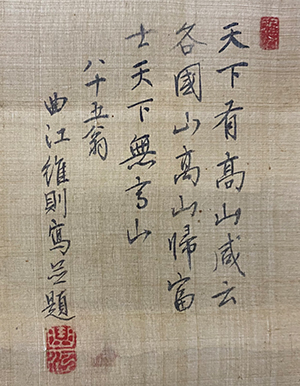 天下有高山咸云
各國山高山歸富
士天下無高山
八十五翁
曲江維則寫並題